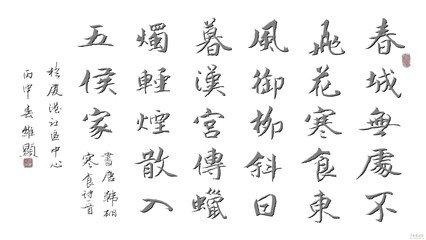 春城無處不
飛花寒食東
風御柳斜日
暮漢宮傳蠟
燭輕煙散入
五侯家
書唐韓翃
寒食詩一首
於廈港社區中心
丙申春